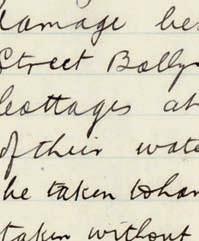 damage be
Street Bally
Cottages at
of their wate
be taken than
taken without